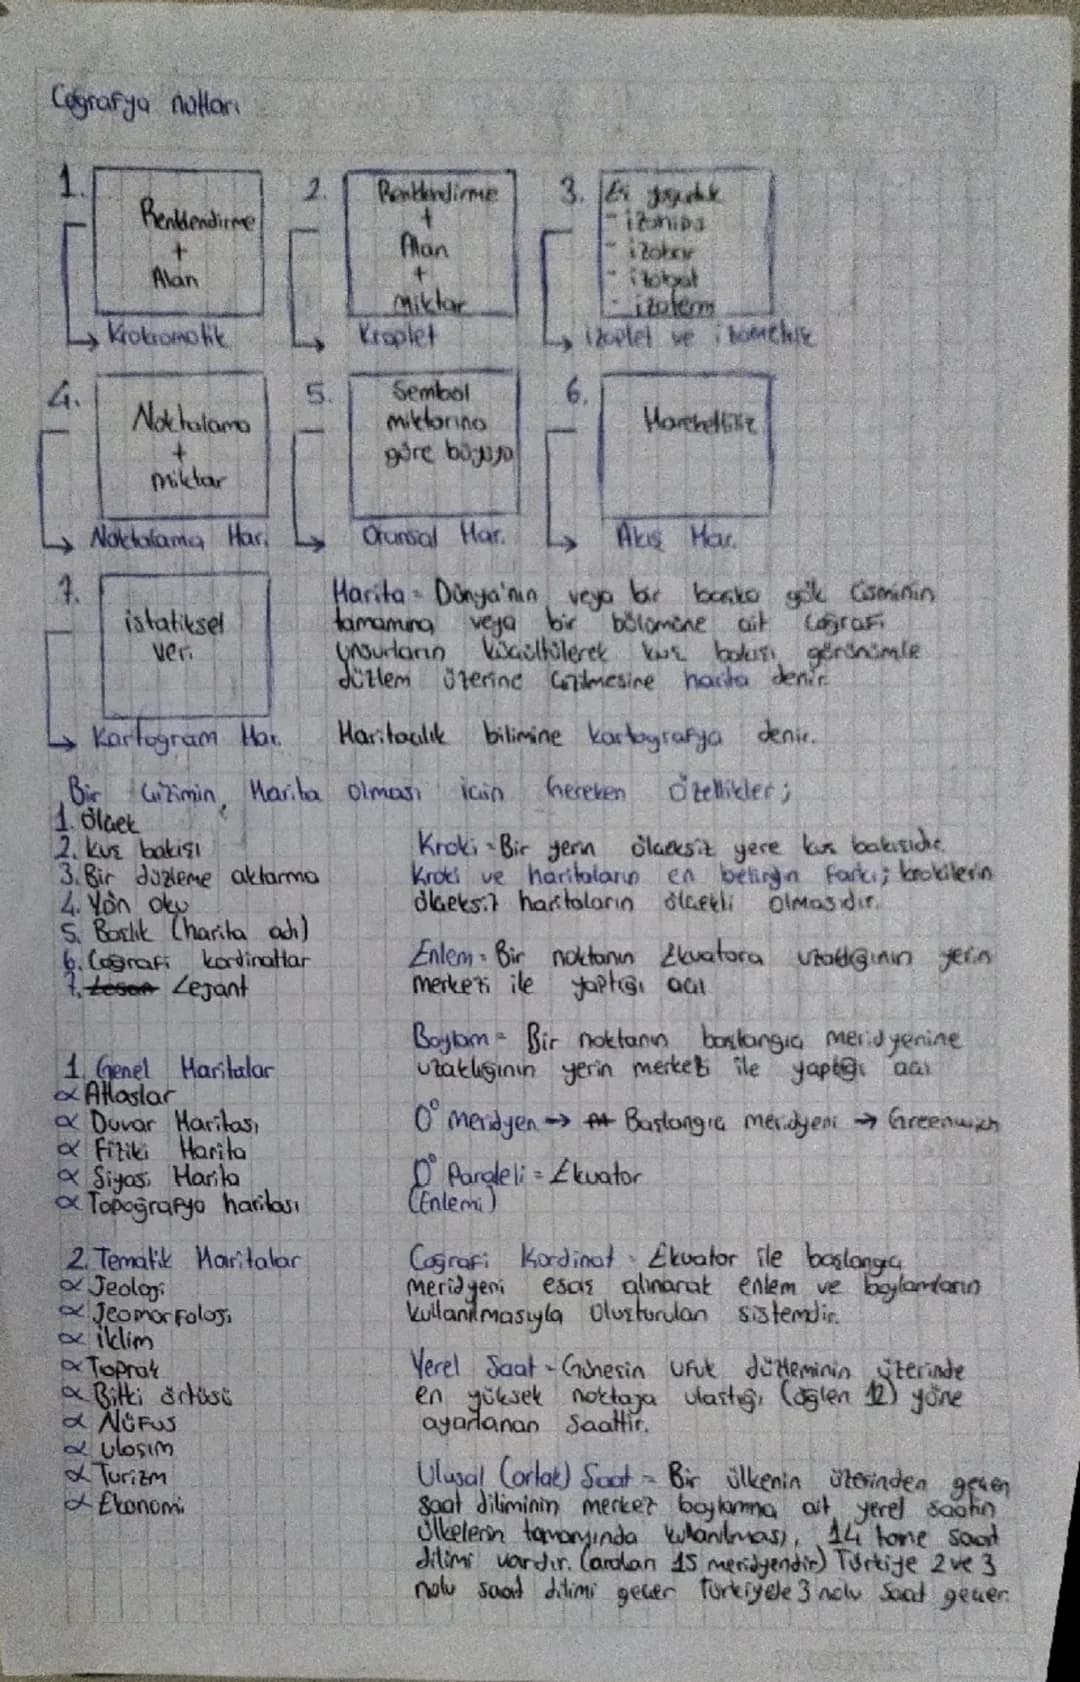 Coğrafya notları
1.
Renklendirme
+
Alan
Krokromotik
2.
Renklendirme
+
Alan
+
Miktar
Kroplet
3.
- izohips
- izobar
- izobat
- izoterm
izoplet ve izometrik
4.
Noktalama
+
miktar
Noktalama Har.
5.
Sembol
miktarına
göre büyüyo
Oransal Har.
6.
Akış Har.
7.
istatiksel
veri
Kartogram Har.
Harita = Dünya'nın veya bir başka gök cisminin
tamamına veya bir bölümüne ait coğrafi
unsurların küçültülerek kuş bakışı görünümle
düzlem üzerine çizilmesine harita denir.
Haritacılık bilimine kartografya denir.
Bir Çizimin, Harita olması için Gereken özellikler;
1. ölçek
2. kuş bakışı
3. Bir düzleme aktarma
4. Yön oku
5. Başlık (harita adı)
6. Coğrafi kordinatlar
7. Lejant
Kroki = Bir yerin ölçeksiz yere kuş bakışıdır.
Kroki ve haritaların en belirgin farkı; krokilerin
ölçeksiz haritaların ölçekli olmasıdır.
Enlem = Bir noktanın Ekvatora uzaklığının yerin
merkezi ile yaptığı açı
Boylam = Bir noktanın başlangıç meridyenine
uzaklığının yerin merkezi ile yaptığı açı
0° meridyen → Başlangıç meridyeni → Greenwich
0° Paraleli = Ekvator
(Enlemi)
1. Genel Haritalar
∝ Atlaslar
∝ Duvar Haritası
∝ Fiziki Harita
∝ Siyasi Harita
∝ Topoğrafya haritası
2. Tematik Haritalar
∝ Jeoloji
∝ Jeomorfoloji
∝ iklim
∝ Toprak
∝ Bitki örtüsü
∝ Nüfus
∝ ulaşım
∝ Turizm
∝ Ekonomi
Coğrafi Kordinat = Ekvator ile başlangıç
meridyeni esas alınarak enlem ve boylamların
kullanılmasıyla oluşturulan sistemdir.
Yerel Saat = Güneşin ufuk düzleminin üzerinde
en yüksek noktaya ulaştığı (öğlen 12) yöne
ayarlanan saattir.
Ulusal (ortak) Saat = Bir ülkenin üzerinden geçen
saat diliminin merkez boylamına ait yerel saatin
ülkelerin tamamında kullanılması, 14 tane saat
dilimi vardır. (araları 15 meridyendir) Türkiye 2 ve 3
nolu saat dilimi geçer Türkiyede 3 nolu saat geçer.